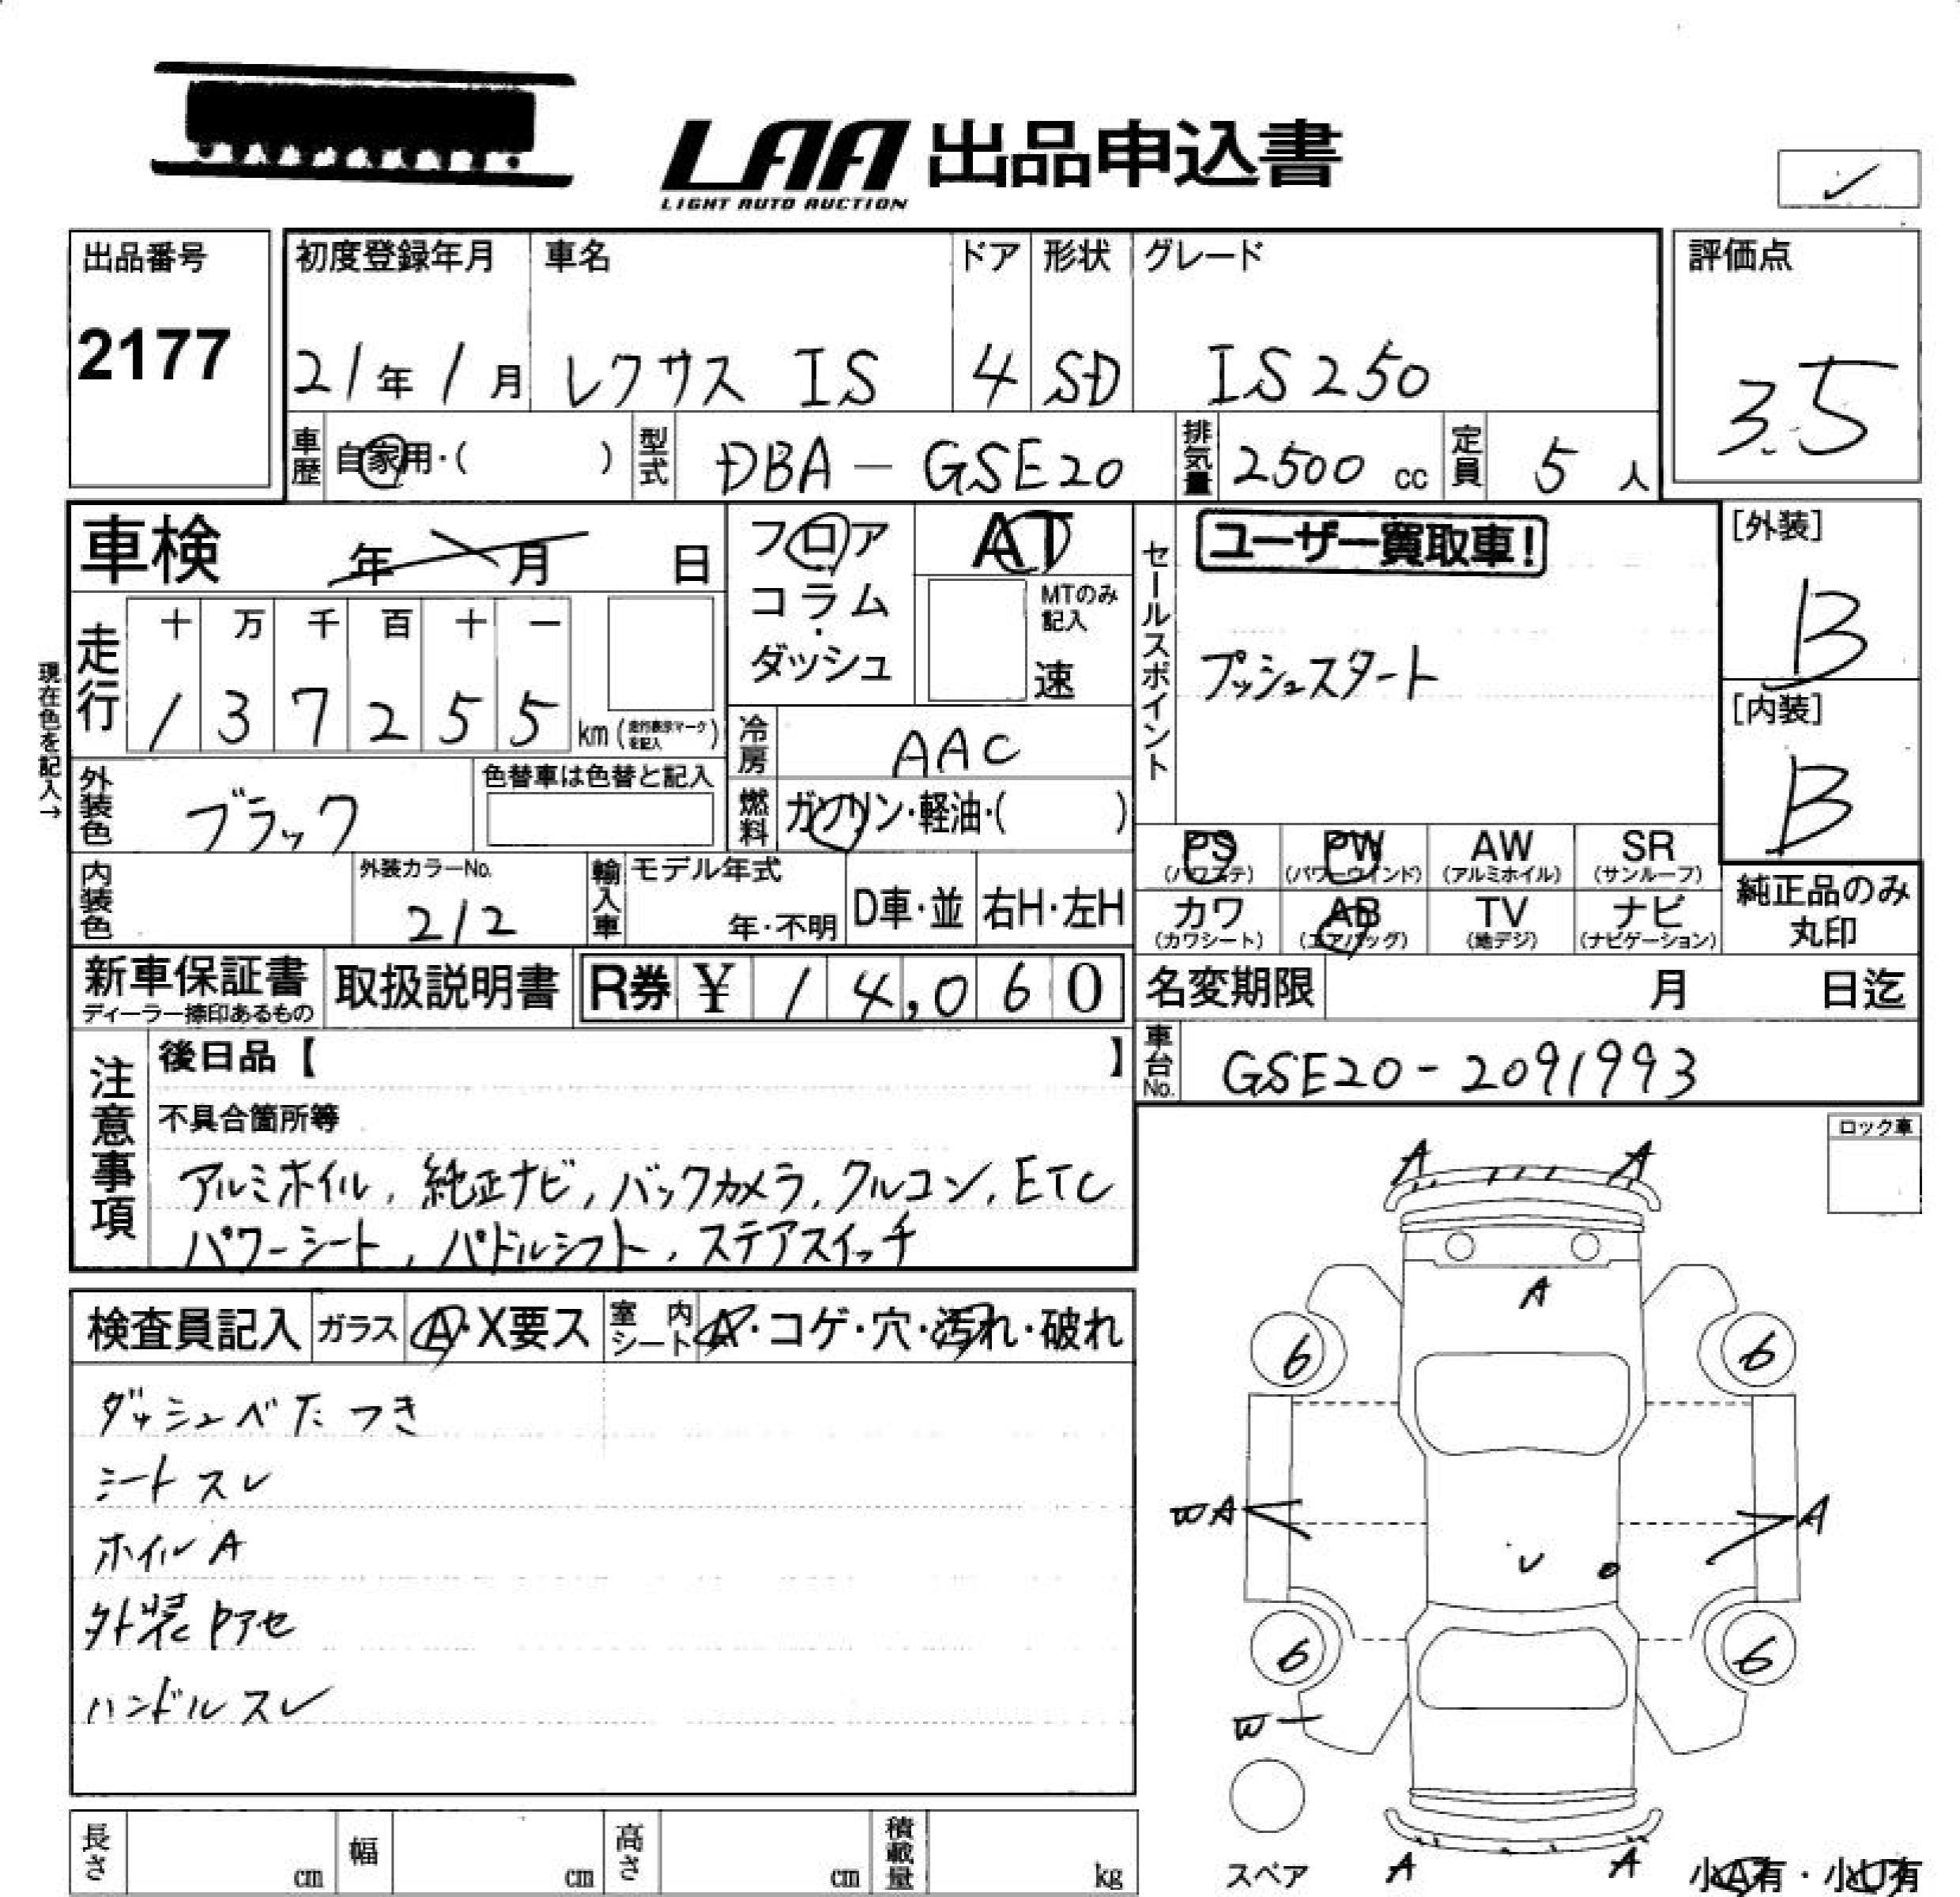 LAA 出品申込書
LIGHT AUTO AUCTION
出品番号
2177
初度登録年月 車名 ドア 形状 グレード
21年 1月 レクサス IS 4 SD IS250
評価点
3.5
車歴 自家用・( ) 型式 DBA-GSE20 排気量 2500 cc 定員 5 人
車検 年 月 日
フロア
コラム
・
ダッシュ
AT
MTのみ
記入
速
セールスポイント
ユーザー買取車!
プッシュスタート
[外装]
B
[内装]
B
現在色を記入→
走行
十 万 千 百 十 一
1 3 7 2 5 5 km (走行表示マークを記入)
冷房 AAC
外装色 ブラック
色替車は色替と記入
燃料 ガソリン・軽油・( )
PS PW AW SR
(パワステ) (パワーウインド) (アルミホイル) (サンルーフ)
カワ AB TV ナビ
(カワシート) (エアバッグ) (地デジ) (ナビゲーション)
純正品のみ
丸印
内装色
外装カラーNo.
212
輸入車
モデル年式
年・不明
D車・並 右H・左H
新車保証書
ディーラー捺印あるもの
取扱説明書
R券 ¥ 14,060
名変期限 月 日迄
車台No. GSE20-2091993
注意事項
後日品【 】
不具合箇所等
アルミホイル, 純正ナビ, バックカメラ, クルコン, ETC
パワーシート, パドルシフト, ステアスイッチ
ロック車
検査員記入 ガラス A・X要ス 室内シート A・コゲ・穴・汚れ・破れ
ダッシュベたつき
シートスレ
ホイルA
外装ヤアセ
ハンドルスレ
A A
A
6 6
WA A
6 6
W
スペア
A A
小A有・小U有
長さ cm 幅 cm 高さ cm 積載量 kg